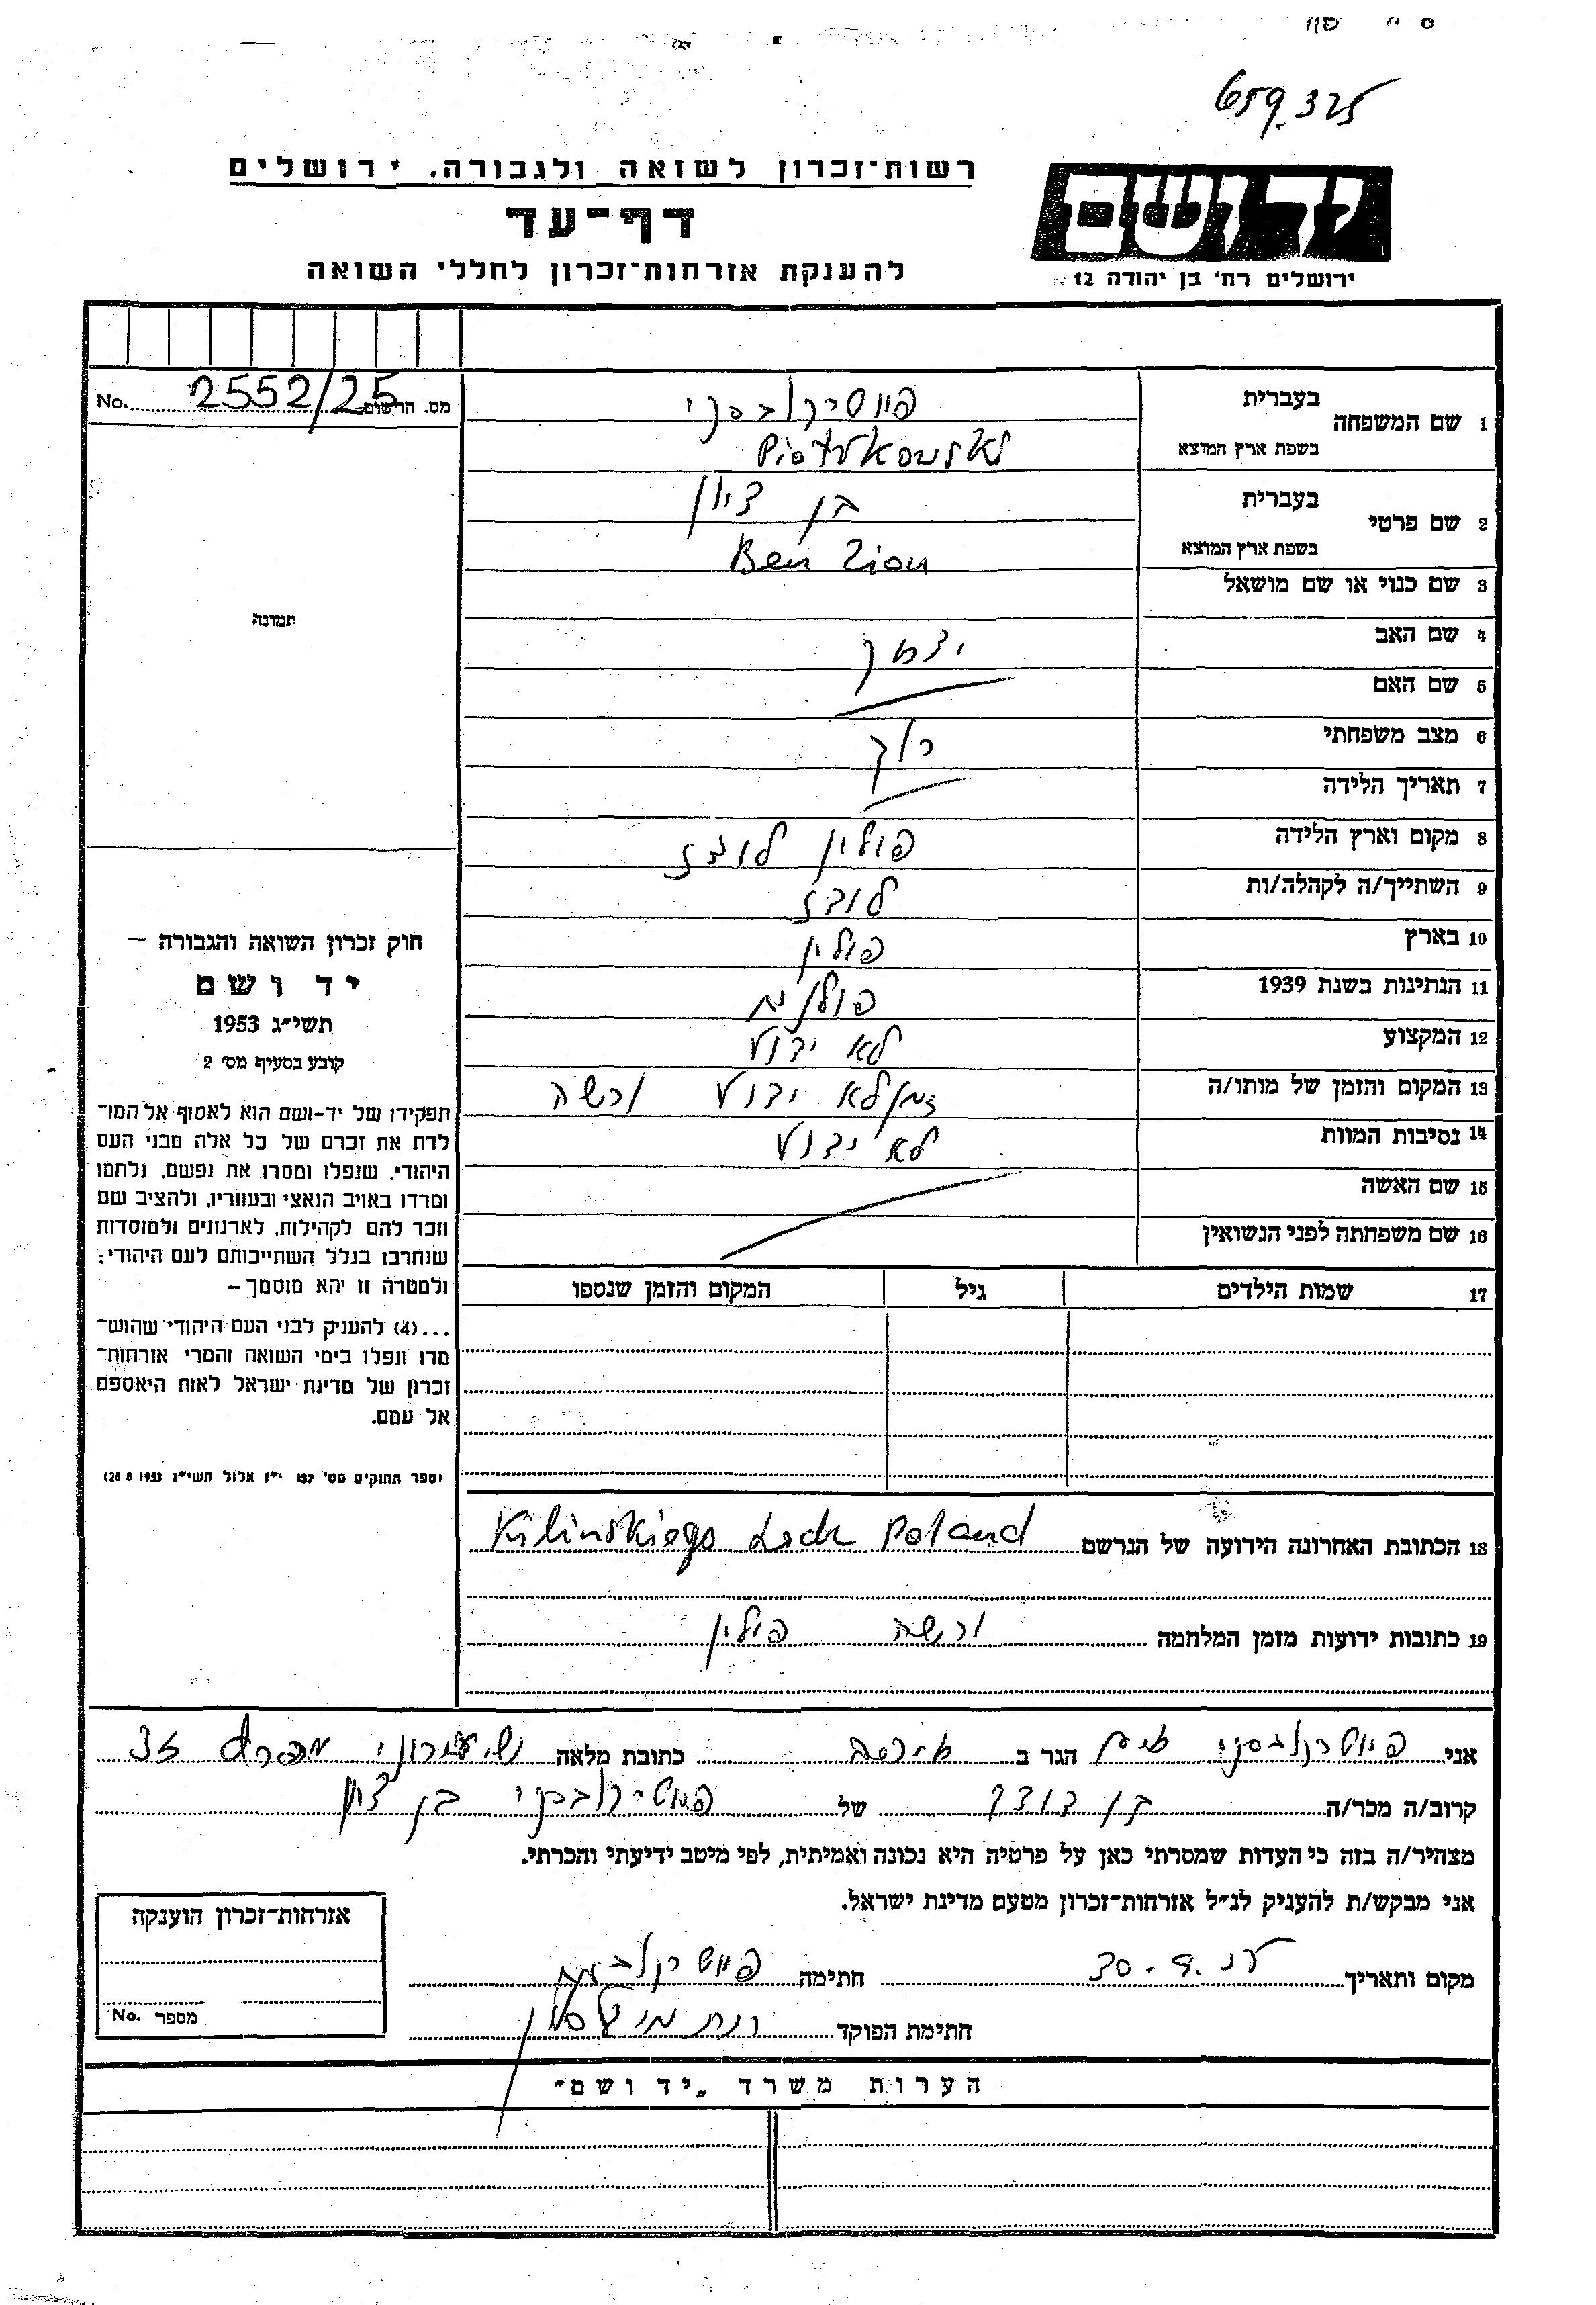 659.325
רשות־זכרון לשואה ולגבורה, ירושלים
דף־עד
להענקת אזרחות־זכרון לחללי השואה
יד ושם
ירושלים רח' בן יהודה 12
No. 2552/25 מס. הרשום
1 שם המשפחה בעברית פיוטרקובסקי
בשפת ארץ המוצא Piotrkowski
2 שם פרטי בעברית בן ציון
בשפת ארץ המוצא Ben Zion
3 שם כנוי או שם מושאל
4 שם האב יצחק
5 שם האם
6 מצב משפחתי רווק
7 תאריך הלידה
8 מקום וארץ הלידה פולין לודז
9 השתייך/ה לקהלה/ות לודז
10 בארץ פולין
11 הנתינות בשנת 1939 פולנית
12 המקצוע לא ידוע
13 המקום והזמן של מותו/ה זמן לא ידוע ורשה
14 נסיבות המוות לא ידוע
15 שם האשה
16 שם משפחתה לפני הנשואין
17 שמות הילדים גיל המקום והזמן שנספו
תמונה
חוק זכרון השואה והגבורה –
יד ושם
תשי״ג 1953
קובע בסעיף מס' 2
תפקידו של יד-ושם הוא לאסוף אל המו־
לדת את זכרם של כל אלה מבני העם
היהודי, שנפלו ומסרו את נפשם, נלחמו
ומרדו באויב הנאצי ובעוזריו, ולהציב שם
וזכר להם לקהילות, לארגונים ולמוסדות
שנחרבו בגלל השתייכותם לעם היהודי;
ולמטרה זו יהא מוסמך –
...(4) להעניק לבני העם היהודי שהוש־
מדו ונפלו בימי השואה והמרי אזרחות־
זכרון של מדינת ישראל לאות היאספם
אל עמם.
(ספר החוקים מס' 132 י״ז אלול תשי״ג 28.8.1953)
18 הכתובת האחרונה הידועה של הנרשם Kilinskiego Lodz Poland
19 כתובות ידועות מזמן המלחמה ורשה פולין
אני פיוטרקובסקי הגר ב כתובת מלאה
קרוב/ה מכר/ה בן דודו של פיוטרקובסקי בן ציון
מצהיר/ה בזה כי העדות שמסרתי כאן על פרטיה היא נכונה ואמיתית, לפי מיטב ידיעתי והכרתי.
אני מבקש/ת להעניק לנ״ל אזרחות־זכרון מטעם מדינת ישראל.
מקום ותאריך 30. חתימה
חתימת הפוקד
אזרחות־זכרון הוענקה
מספר No.
הערות משרד „יד ושם״